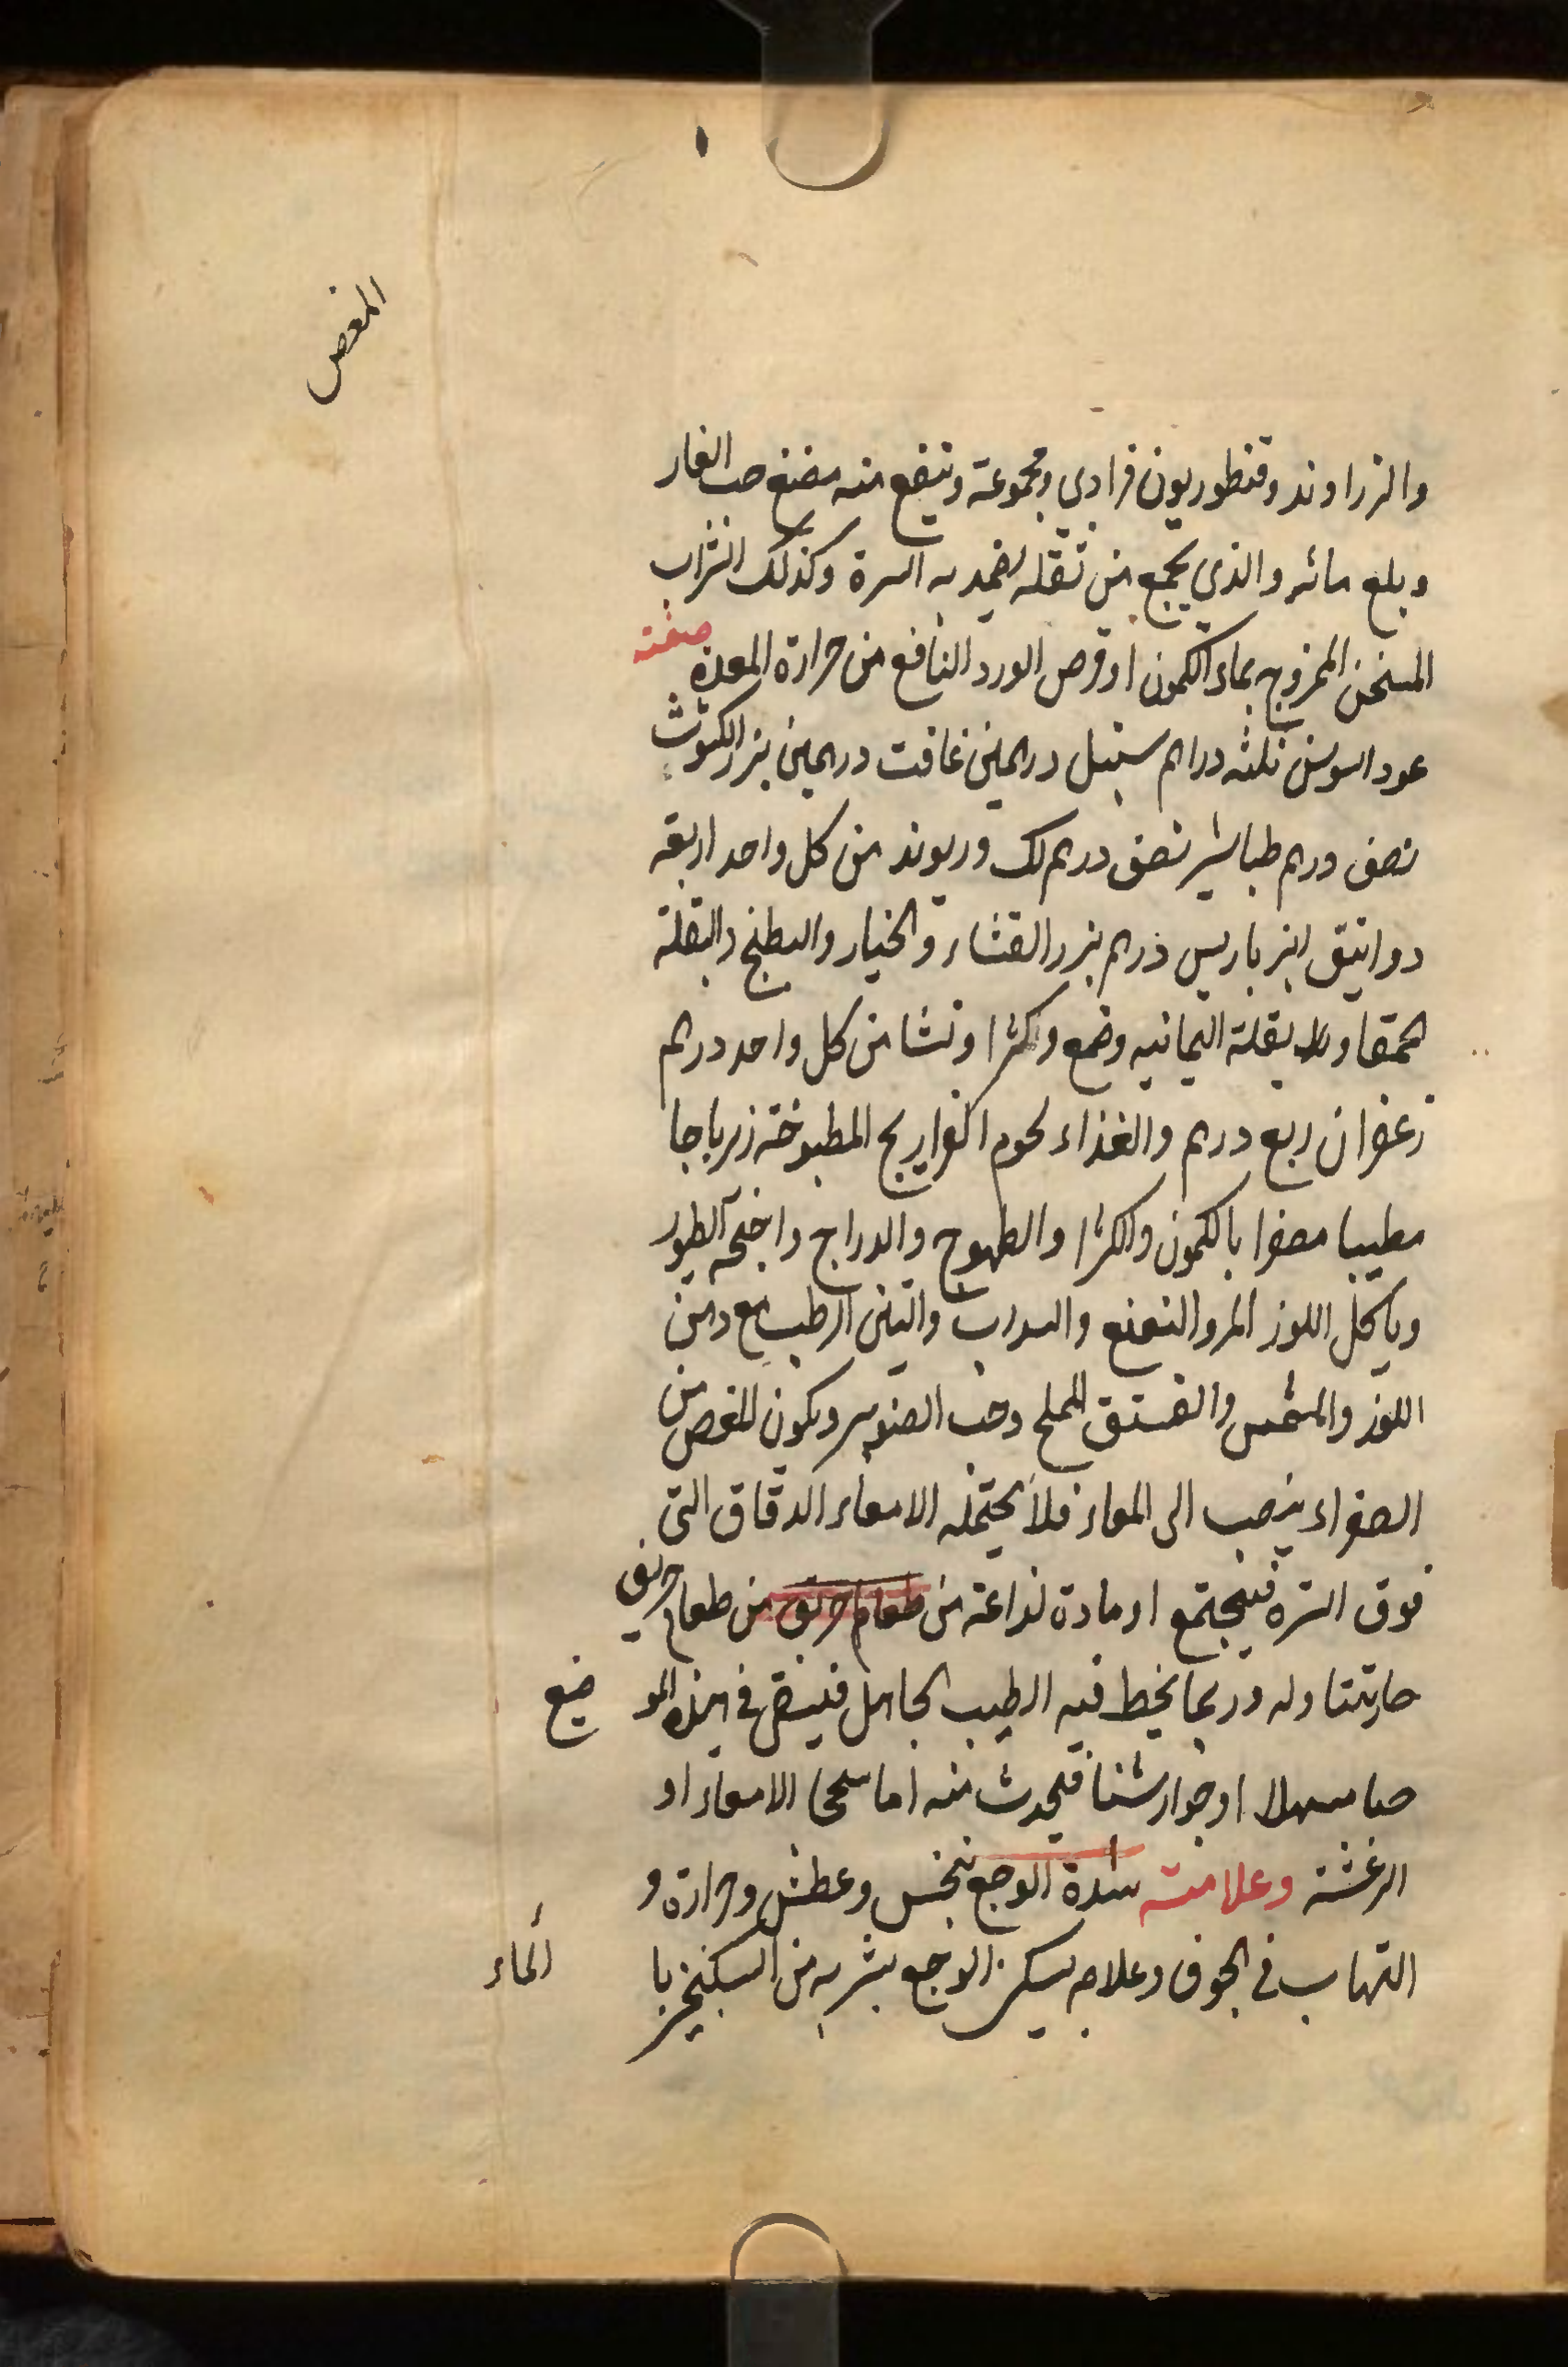 المغص
والزراوند وقنطوريون فرادي ومجموعة وينفع منه مضغ حب الغار
وبلع مائه والذي يجمع من ثقله يضمد به السرة وكذلك الشراب
المسخن الممزوج بماء الكمون او قرص الورد النافع من حرارة المعدة صفته
عود السوس ثلثه دراهم سنبل درهمين غافت درهمين بزر الكثوث
نصف درهم طباشير نصف درهم لك وريوند من كل واحد اربعة
دوانيق انبرباريس درهم بزر القثاء والخيار والبطيخ والبقلة
الحمقا والبقلة اليمانيه وصمغ وكثرا ونشا من كل واحد درهم
زعفران ربع درهم والغذاء لحوم الفراريج المطبوخة زيرباجا
مطيبا مصفرا بالكمون والكرثا والطهوج والدراج واجنحة الطيور
وياكل اللوز المر والنعنع والسداب والتين الرطب مع دهن
اللوز والمشمس والفستق المملح وحب الصنوبر ويكون المغص من
الصفراء ينصب الى المعاء فلا يحتمله الامعاء الدقاق التي
فوق السرة فيجتمع او مادة لذاعة من طعام حريف من طعام حريف
حار يتناوله وربما يخبط فيه الطبيب الجاهل فيسقي في هذه المو ضع
حبا مسهلا او جوارشنا فيحدث منه اما سحج الامعاء او
الرغشة وعلامته شدة الوجع بنخس وعطش وحرارة و
التهاب في الجوف وعلاجه يسكن الوجع بشربه من السكنجبين با الماء